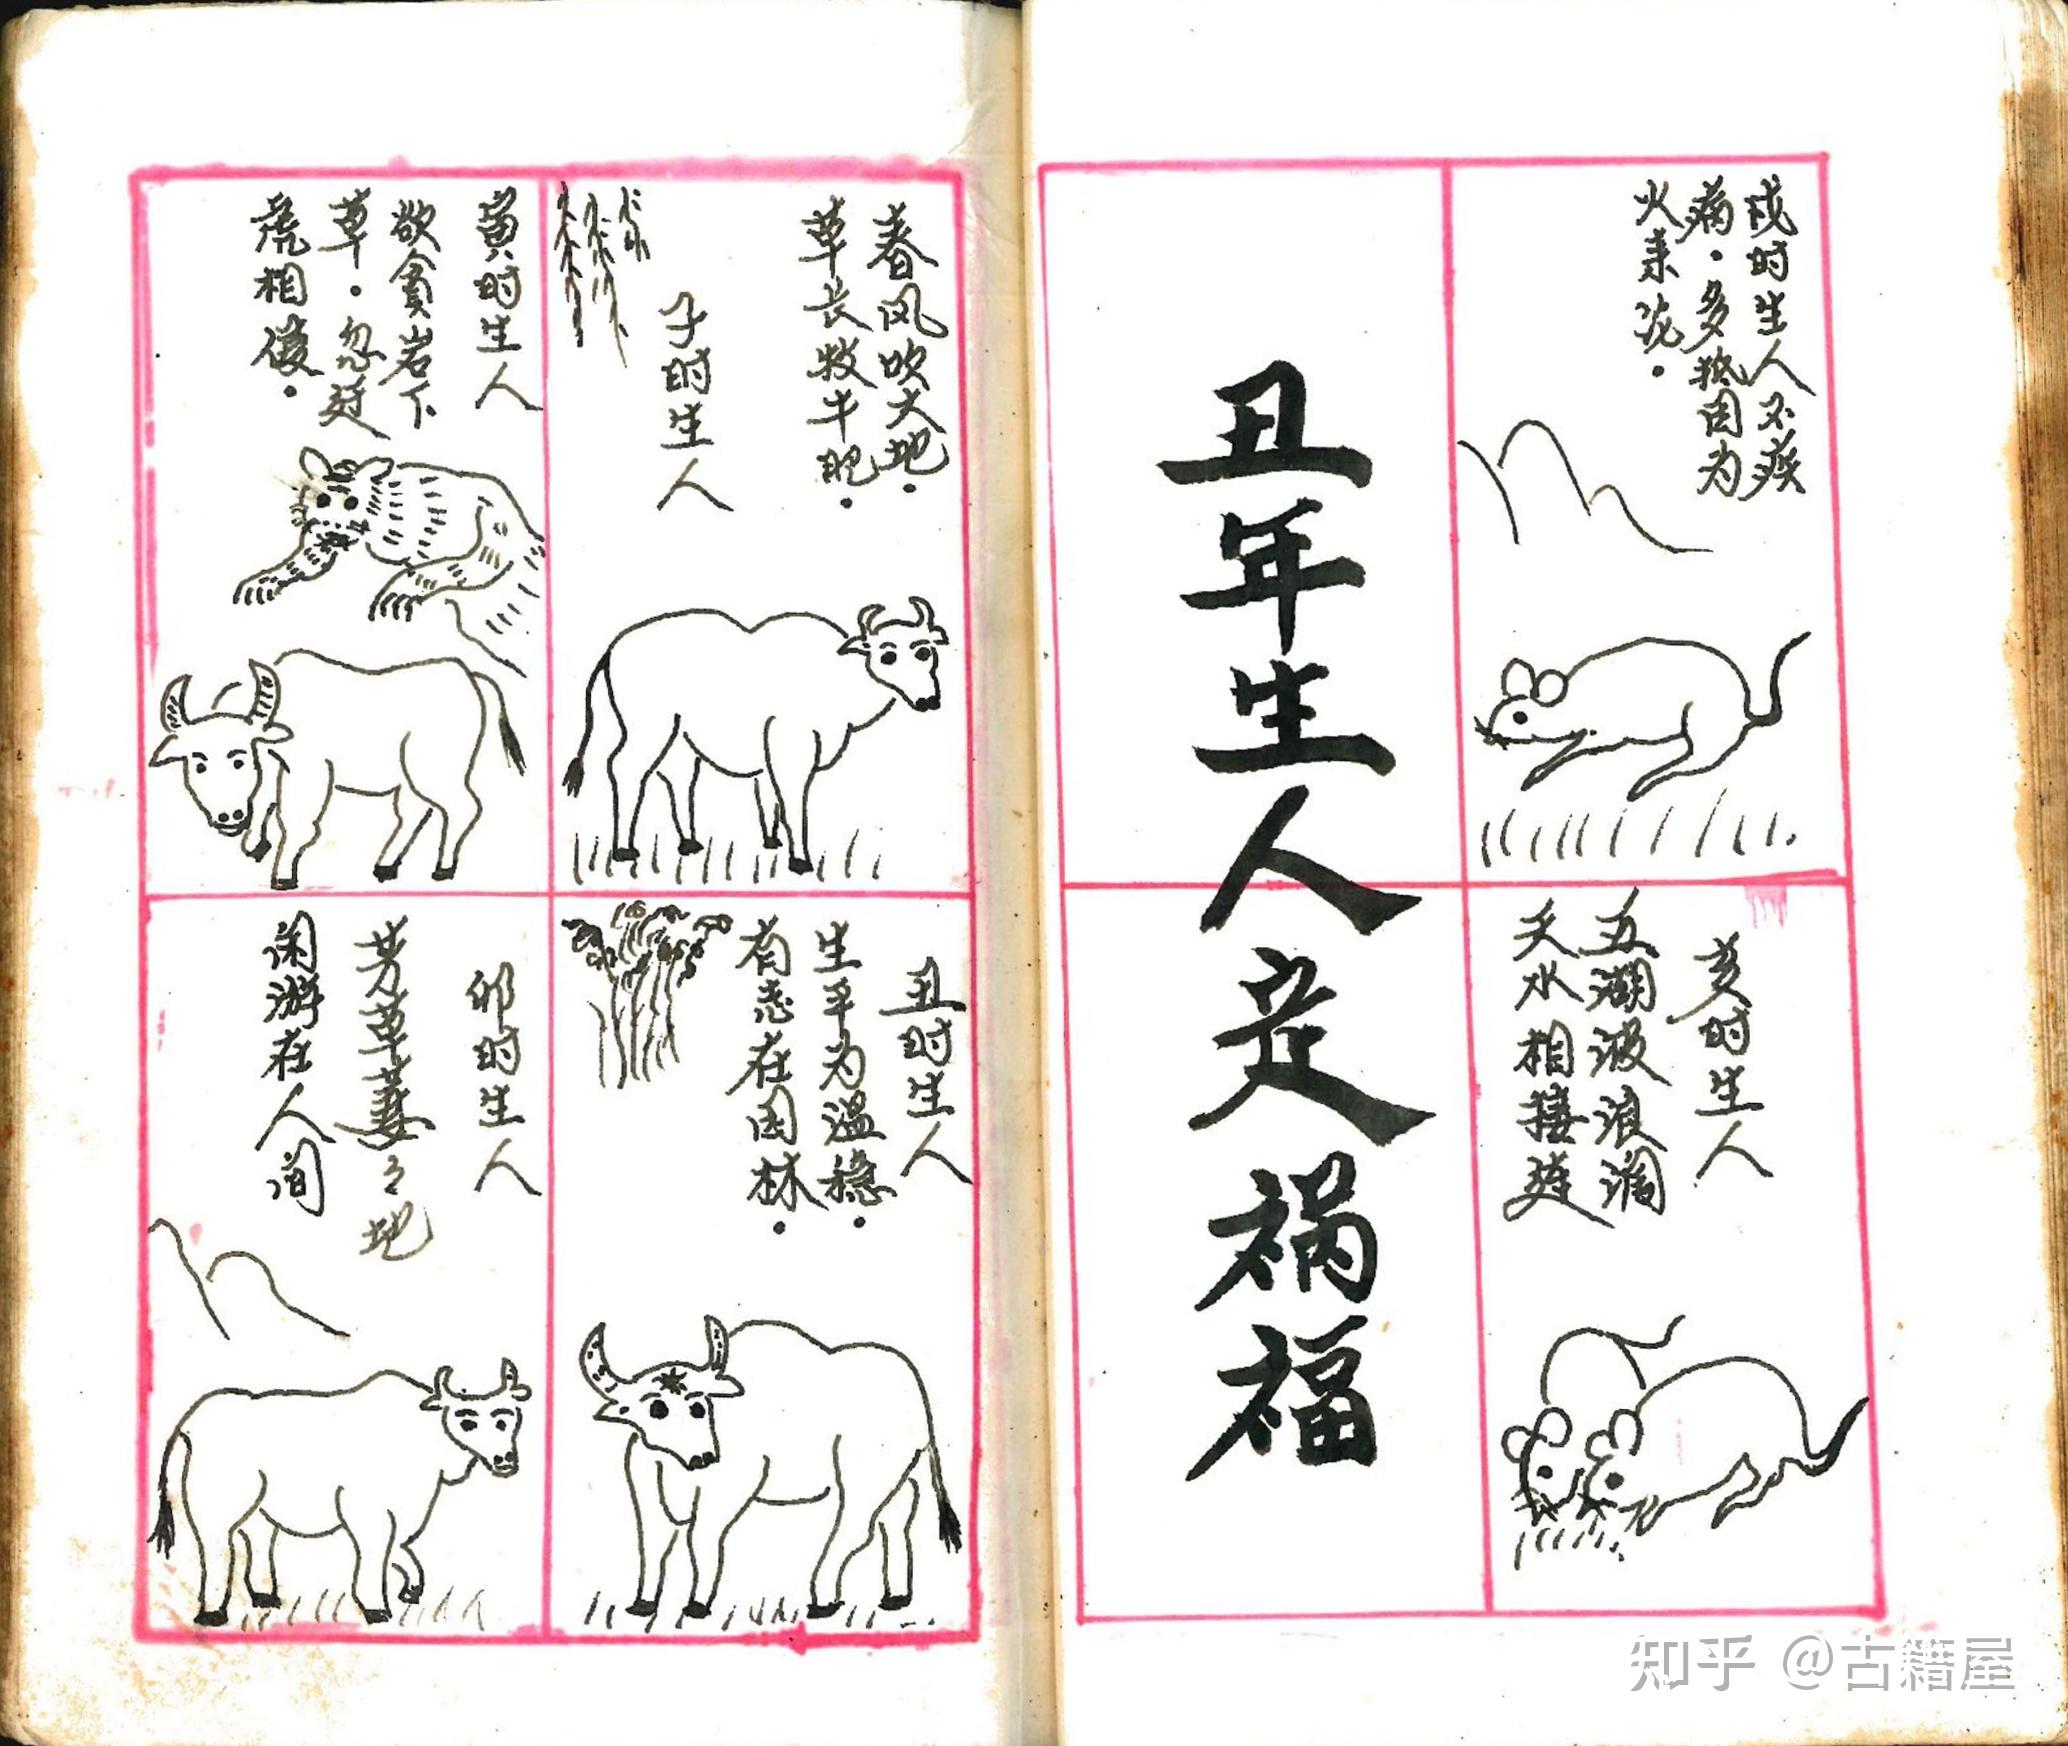 戌时生人疾
病.多因为
火来
亥时生人
五湖波浪濶
天水相接连
丑年生人定祸福
春风吹大地.
草长牧牛肥.
子时生人
丑时生人
生平为温稳.
有志在园林.
寅时生人
欲贪岩下
草.忽逢
虎相侵.
卯时生人
芳草萋々地
闲游在人间
知乎 @古籍屋